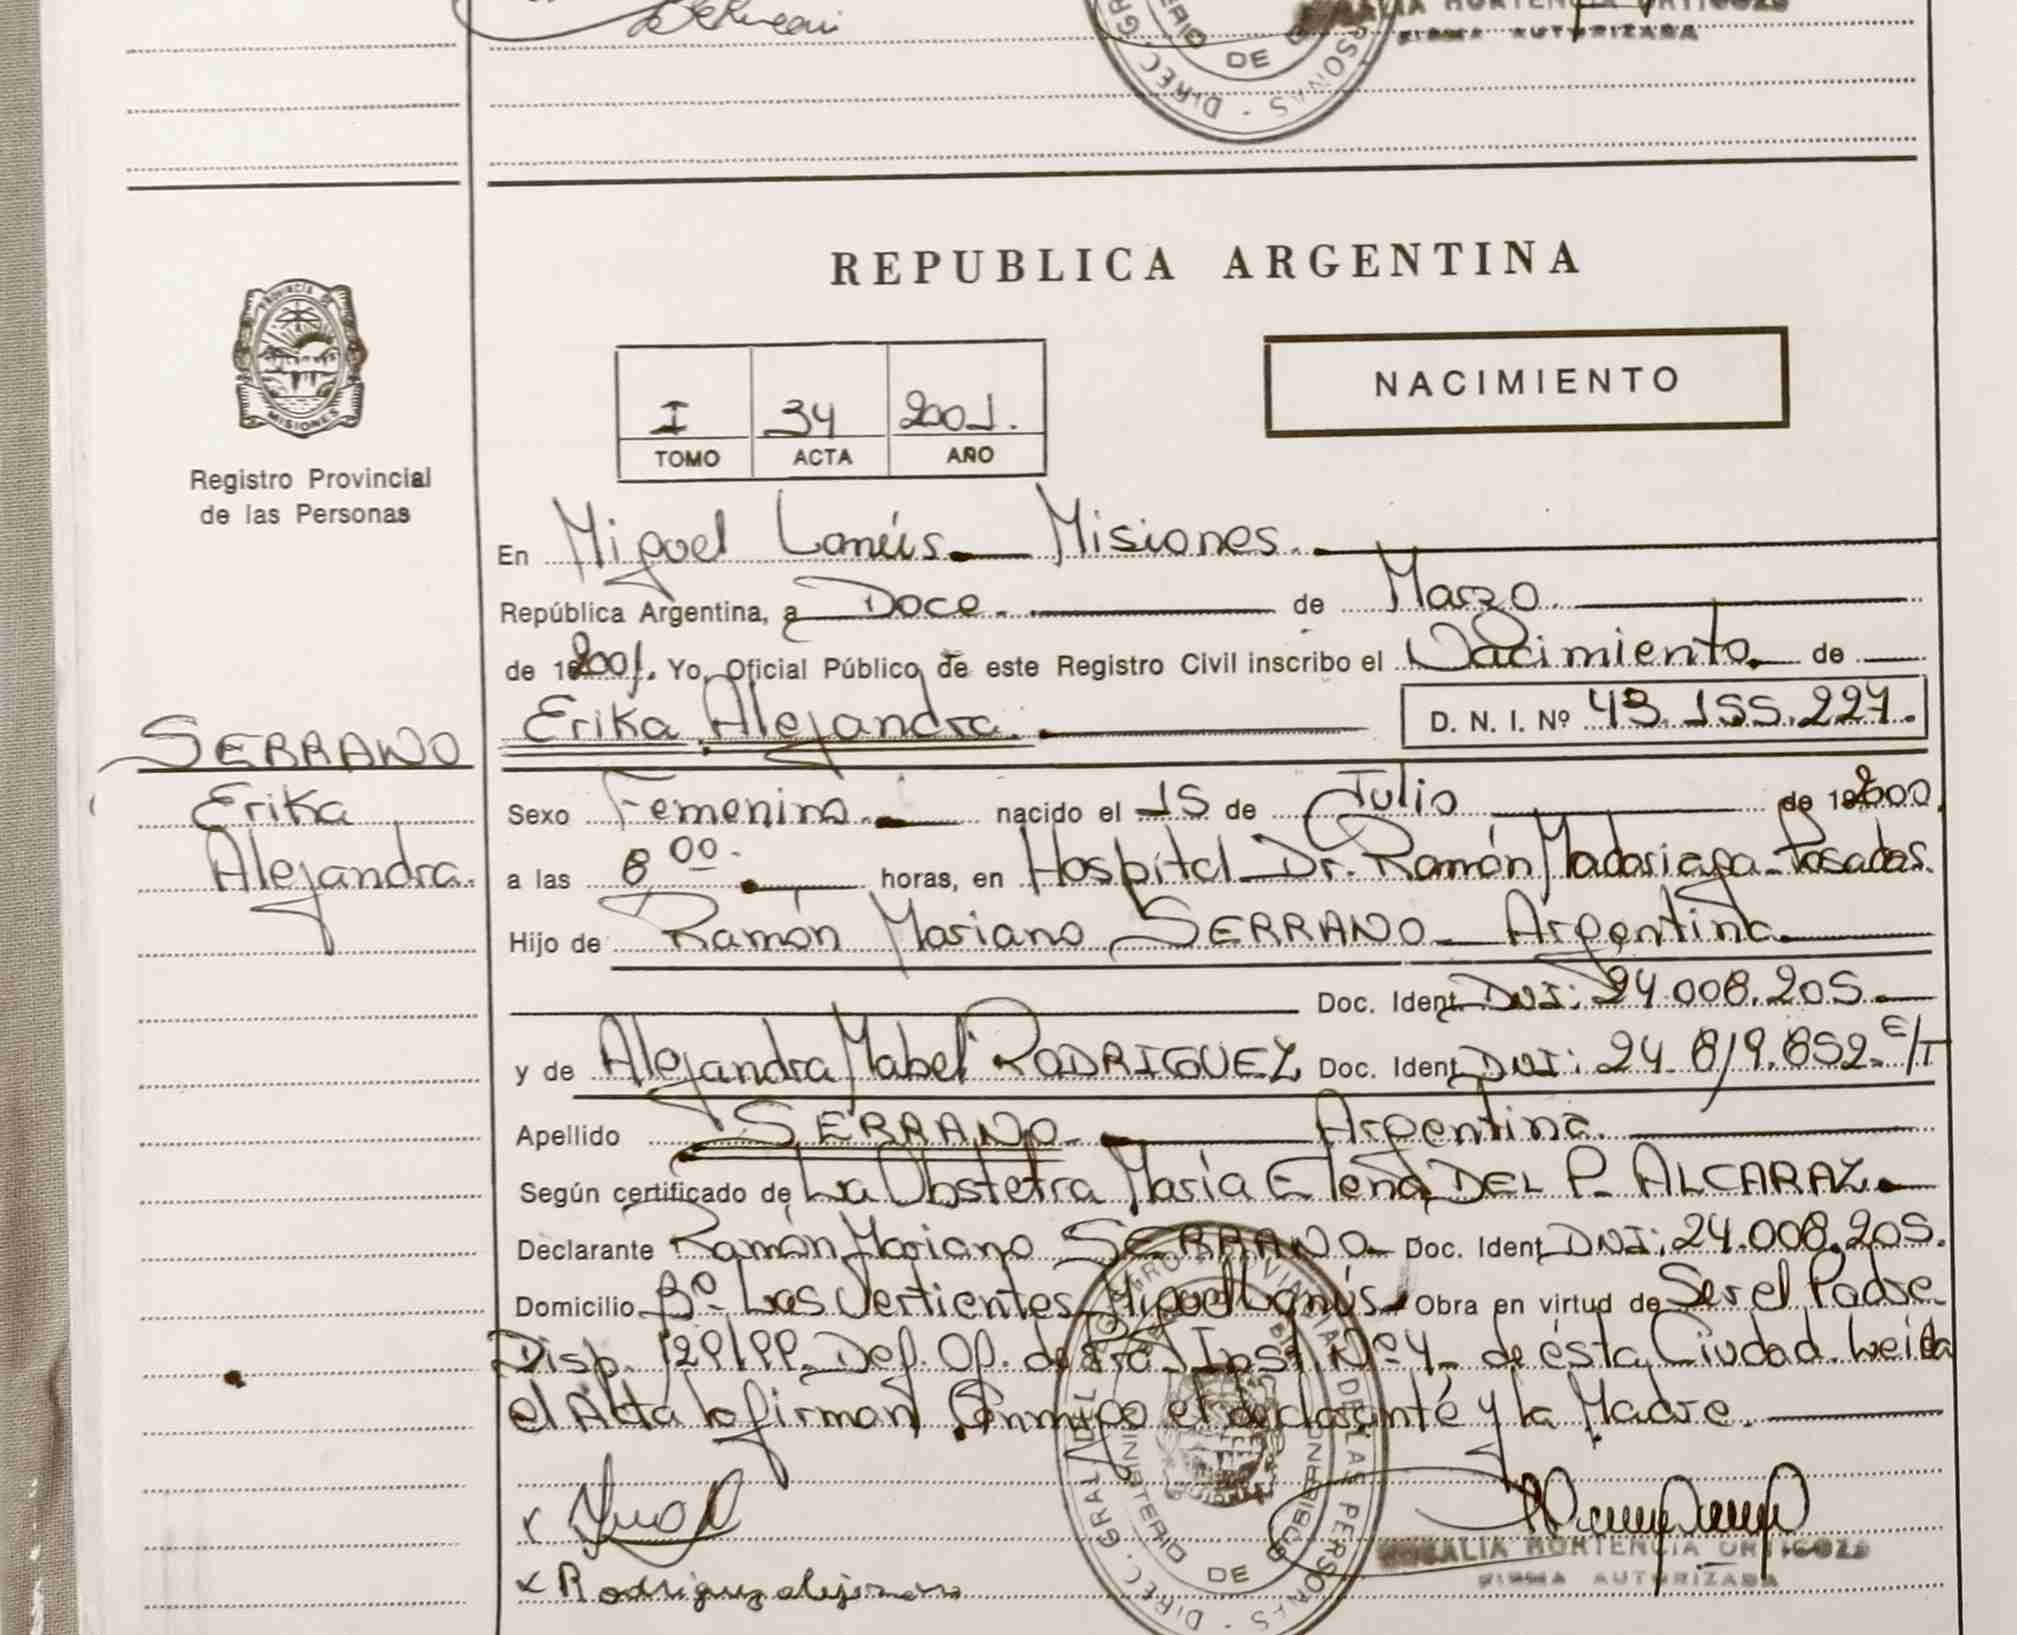 DE
FIRMA AUTORIZADA
REPUBLICA ARGENTINA
PROVINCIA DE
MISIONES
Registro Provincial
de las Personas
I 34 2001.
TOMO ACTA AÑO
NACIMIENTO
En Miguel Lanús. Misiones.
República Argentina, a Doce. de Marzo.
de 19 2001. Yo, Oficial Público de este Registro Civil inscribo el Nacimiento. de
SERRANO
Erika
Alejandra.
Erika Alejandra. D. N. I. Nº 43.155.227.
Sexo Femenino. nacido el 15 de Julio de 19 2000.
a las 8 00. horas, en Hospital Dr. Ramón Madariaga - Posadas.
Hijo de Ramón Mariano SERRANO - Argentina.
Doc. Ident. DNI: 24.008.205.
y de Alejandra Mabel RODRIGUEZ Doc. Ident. DNI: 24.819.852. E/T
Apellido SERRANO. Argentina.
Según certificado de La Obstetra María Elena DEL P. ALCARAZ.
Declarante Ramón Mariano SERRANO. Doc. Ident. DNI: 24.008.205.
Domicilio Bº Las Vertientes - Miguel Lanús. Obra en virtud de Ser el Padre
Disp. Def. Of. de Inst. Nº 4 - de ésta Ciudad. Leida
el Acta la firman Conmigo el declarante y la Madre.
x
x Rodriguez alejandra
REGISTRO PROVINCIAL DE LAS PERSONAS - DIREC. GRAL. DEL
MINISTERIO DE GOBIERNO
ROSALIA HORTENCIA ORTIGOZA
FIRMA AUTORIZADA